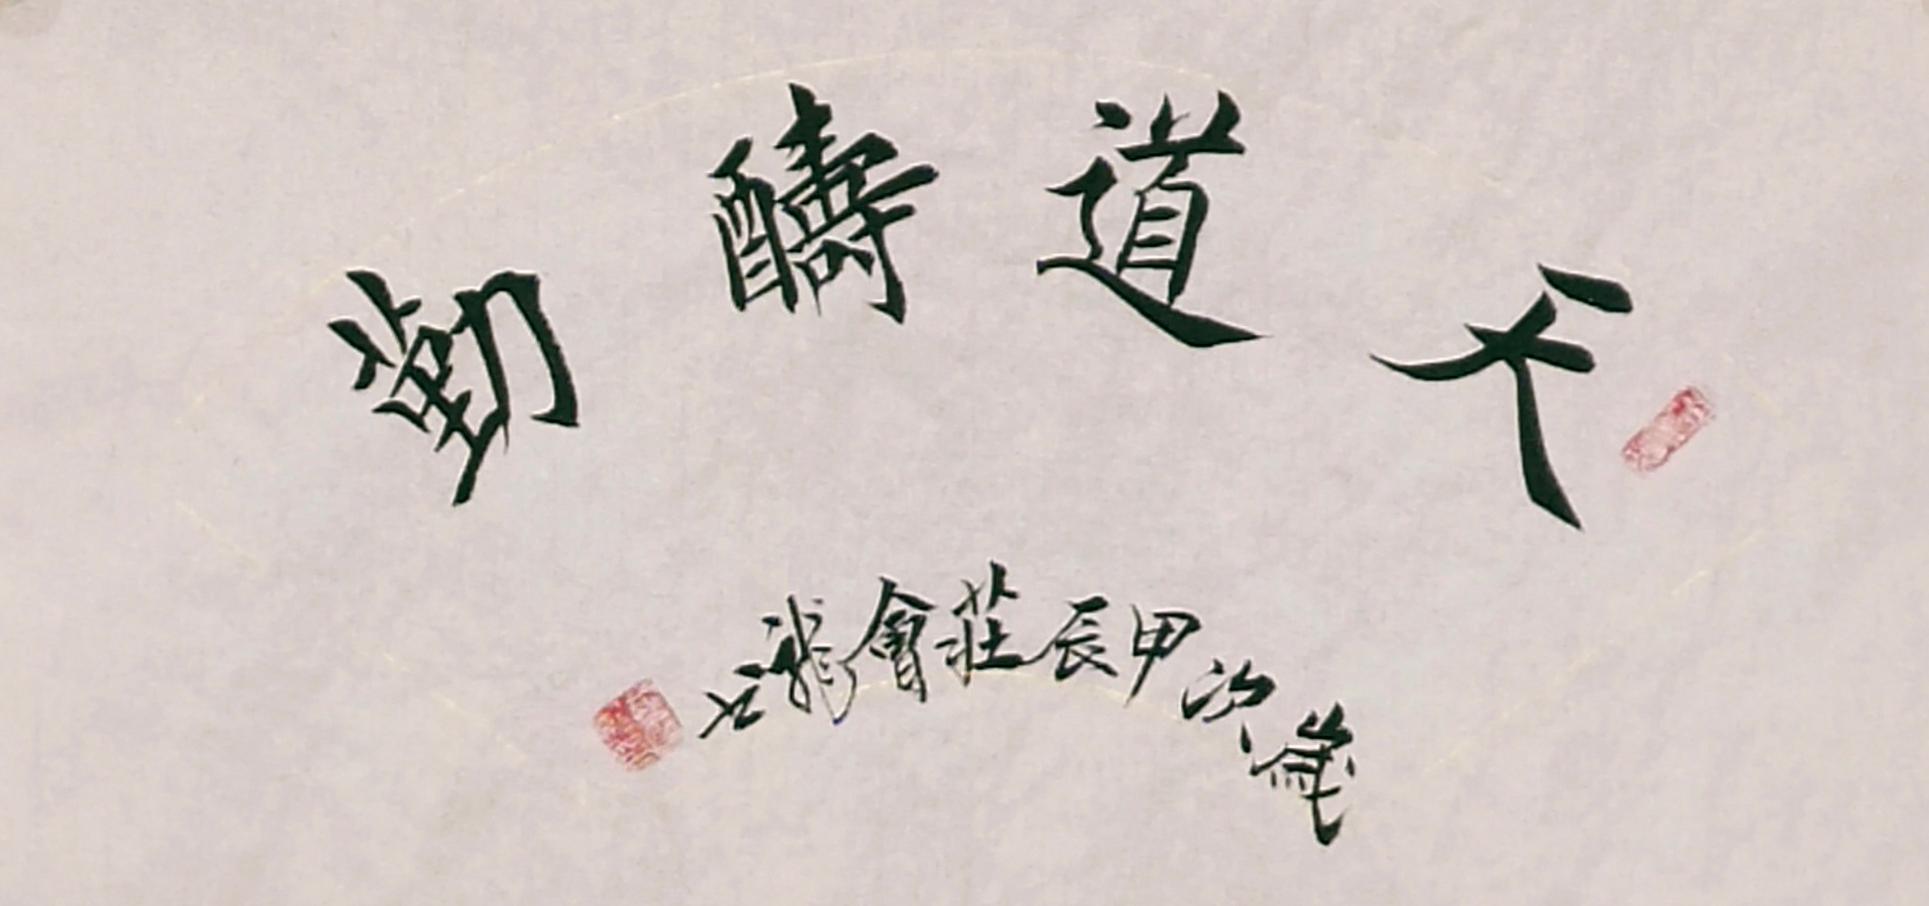 天道酬勤
歲次甲辰莊會龍書